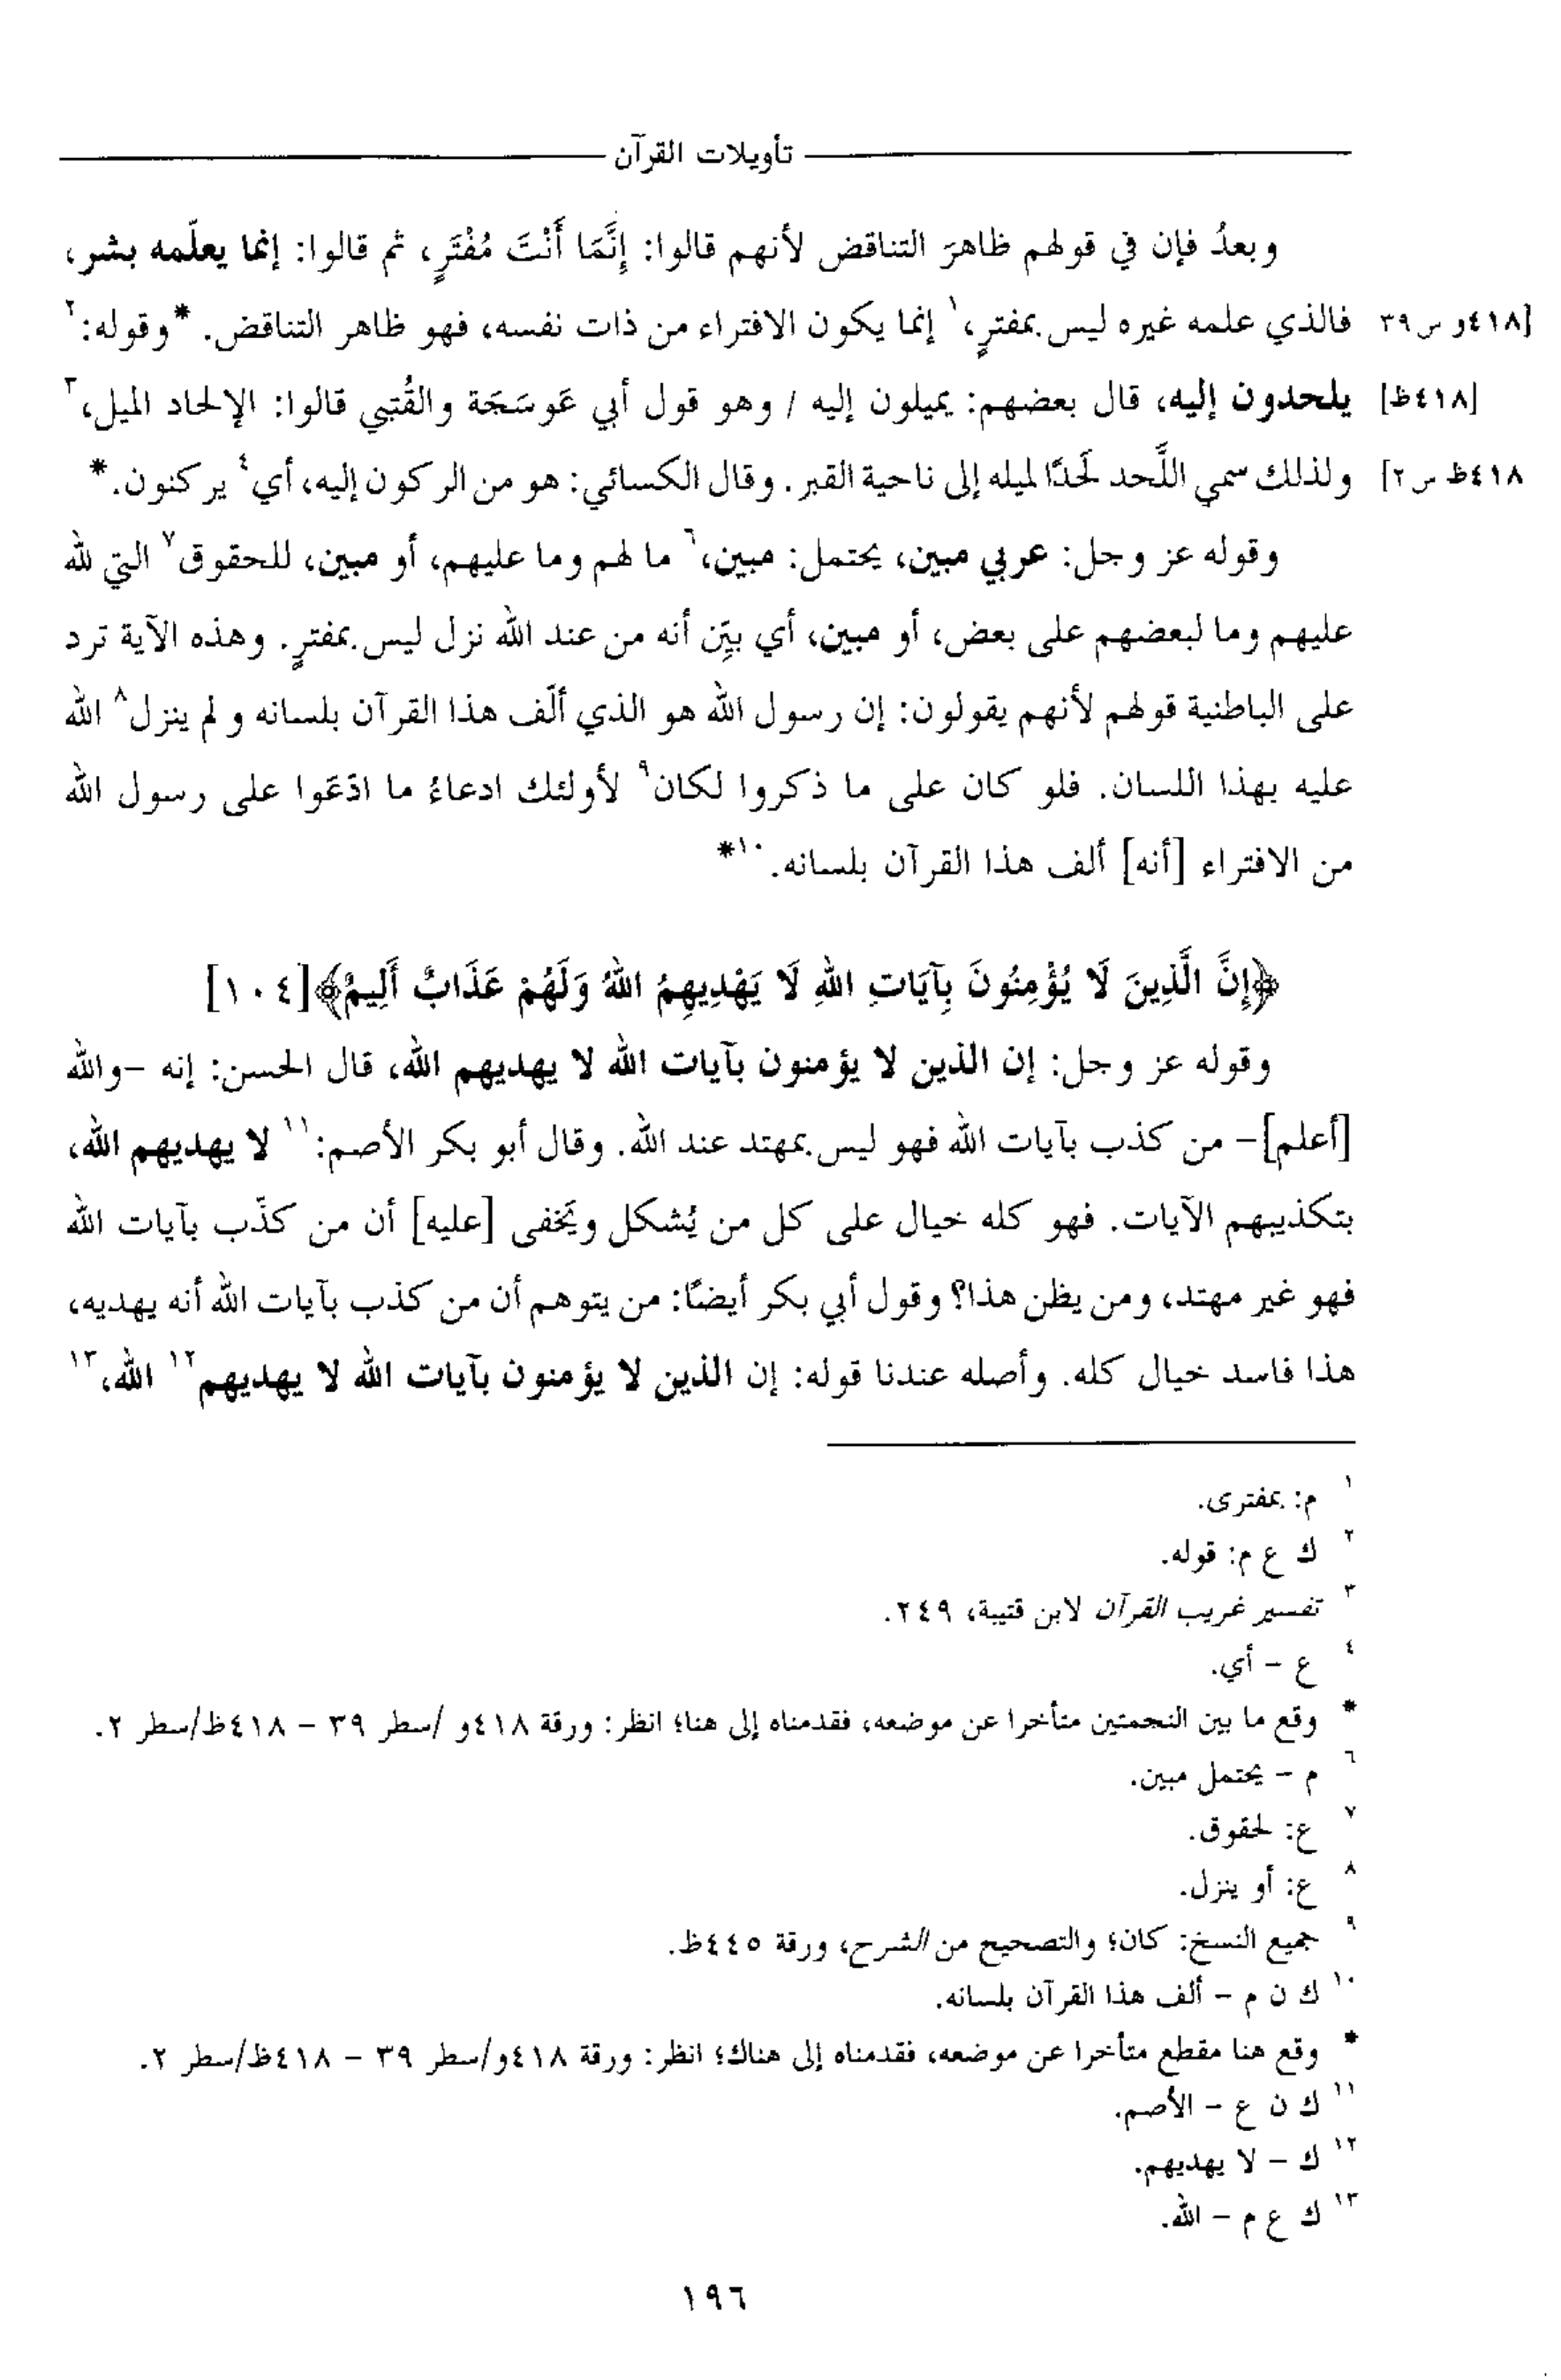 تأويلات القرآن
وبعدُ فإن في قولهم ظاهرَ التناقض لأنهم قالوا: إِنَّمَا أَنْتَ مُفْتَرٍ، ثم قالوا: إنما يعلّمه بشر،
[٤١٨و س٣٩ فالذي علمه غيره ليس بمفترٍ،١ إنما يكون الافتراء من ذات نفسه، فهو ظاهر التناقض. *وقوله:٢
[٤١٨ظ] يلحدون إليه، قال بعضهم: يميلون إليه / وهو قول أبي عَوسَجَة والقُتَبي قالوا: الإلحاد الميل،٣
٤١٨ظ س٢] ولذلك سمي اللَّحد لَحَدًا لميله إلى ناحية القبر. وقال الكسائي: هو من الركون إليه، أي٤ يركنون.*
وقوله عز وجل: عربي مبين، يحتمل: مبين،٦ ما لهم وما عليهم، أو مبين، للحقوق٧ التي لله
عليهم وما لبعضهم على بعض، أو مبين، أي بيِّن أنه من عند الله نزل ليس بمفترٍ. وهذه الآية ترد
على الباطنية قولهم لأنهم يقولون: إن رسول الله هو الذي ألّف هذا القرآن بلسانه و لم ينزل٨ الله
عليه بهذا اللسان. فلو كان على ما ذكروا لكان٩ لأولئك ادعاءُ ما ادّعَوا على رسول الله
من الافتراء [أنه] ألف هذا القرآن بلسانه.١٠*
﴿إِنَّ الَّذِينَ لَا يُؤْمِنُونَ بِآيَاتِ اللهِ لَا يَهْدِيهِمُ اللهُ وَلَهُمْ عَذَابٌ أَلِيمٌ﴾[١٠٤]
وقوله عز وجل: إن الذين لا يؤمنون بآيات الله لا يهديهم الله، قال الحسن: إنه -والله
[أعلم]- من كذب بآيات الله فهو ليس بمهتد عند الله. وقال أبو بكر الأصم:١١ لا يهديهم الله،
بتكذيبهم الآيات. فهو كله خيال على كل من يُشكل ويَخفى [عليه] أن من كذّب بآيات الله
فهو غير مهتد، ومن يظن هذا؟ وقول أبي بكر أيضًا: من يتوهم أن من كذب بآيات الله أنه يهديه،
هذا فاسد خيال كله. وأصله عندنا قوله: إن الذين لا يؤمنون بآيات الله لا يهديهم١٢ الله،١٣
١ م: بمفترى.
٢ ك ع م: قوله.
٣ تفسير غريب القرآن لابن قتيبة، ٢٤٩.
٤ ع - أي.
* وقع ما بين النجمتين متأخرا عن موضعه، فقدمناه إلى هنا؛ انظر: ورقة ٤١٨و /سطر ٣٩ - ٤١٨ظ/سطر ٢.
٦ م - يحتمل مبين.
٧ ع: لحقوق.
٨ ع: أو ينزل.
٩ جميع النسخ: كان؛ والتصحيح من الشرح، ورقة ٤٤٥ظ.
١٠ ك ن م - ألف هذا القرآن بلسانه.
* وقع هنا مقطع متأخرا عن موضعه، فقدمناه إلى هناك؛ انظر: ورقة ٤١٨و/سطر ٣٩ - ٤١٨ظ/سطر ٢.
١١ ك ن ع - الأصم.
١٢ ك - لا يهديهم.
١٣ ك ع م - الله.
١٩٦